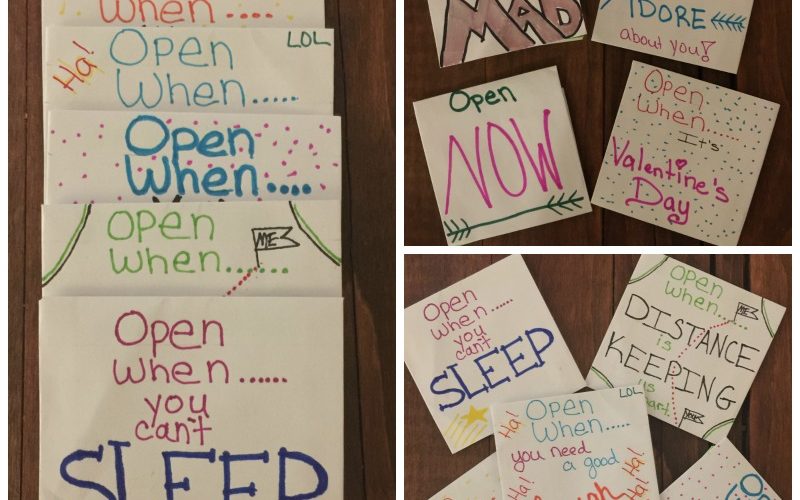 When.....
Ha!
Open
LOL
When.....
Open
When....
open
when......
ME
Open
when......
you
can't
SLEEP
MAD
ADORE
about you!
Open
NOW
Open
When......
It's
Valentine's
Day
Open
when......
you
can't
SLEEP
Open
when......
ME
DISTANCE
is
KEEPING
us
Ha!
Open
LOL
When.....
you need
a good
Ha!
Ha!